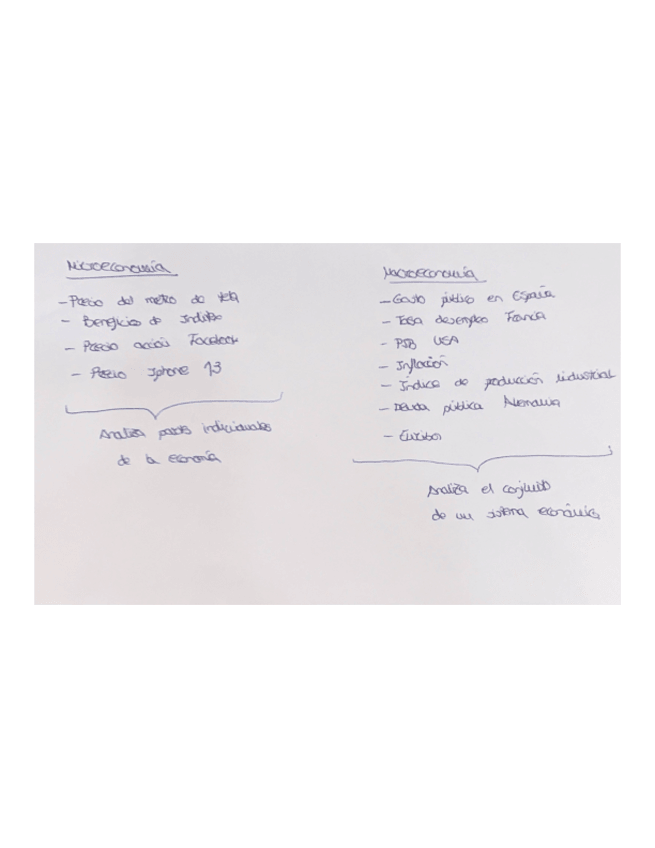 Microeconomía
- Precio del metro de tela
- Beneficio de Inditex
- Precio acciones Facebook
- Precio Iphone 13
Analiza partes individuales
de la economía
Macroeconomía
- Gasto público en España
- Tasa desempleo Francia
- PIB USA
- Inflación
- Índice de producción industrial
- Deuda pública Alemania
- Euribor
Analiza el conjunto
de un sistema económico